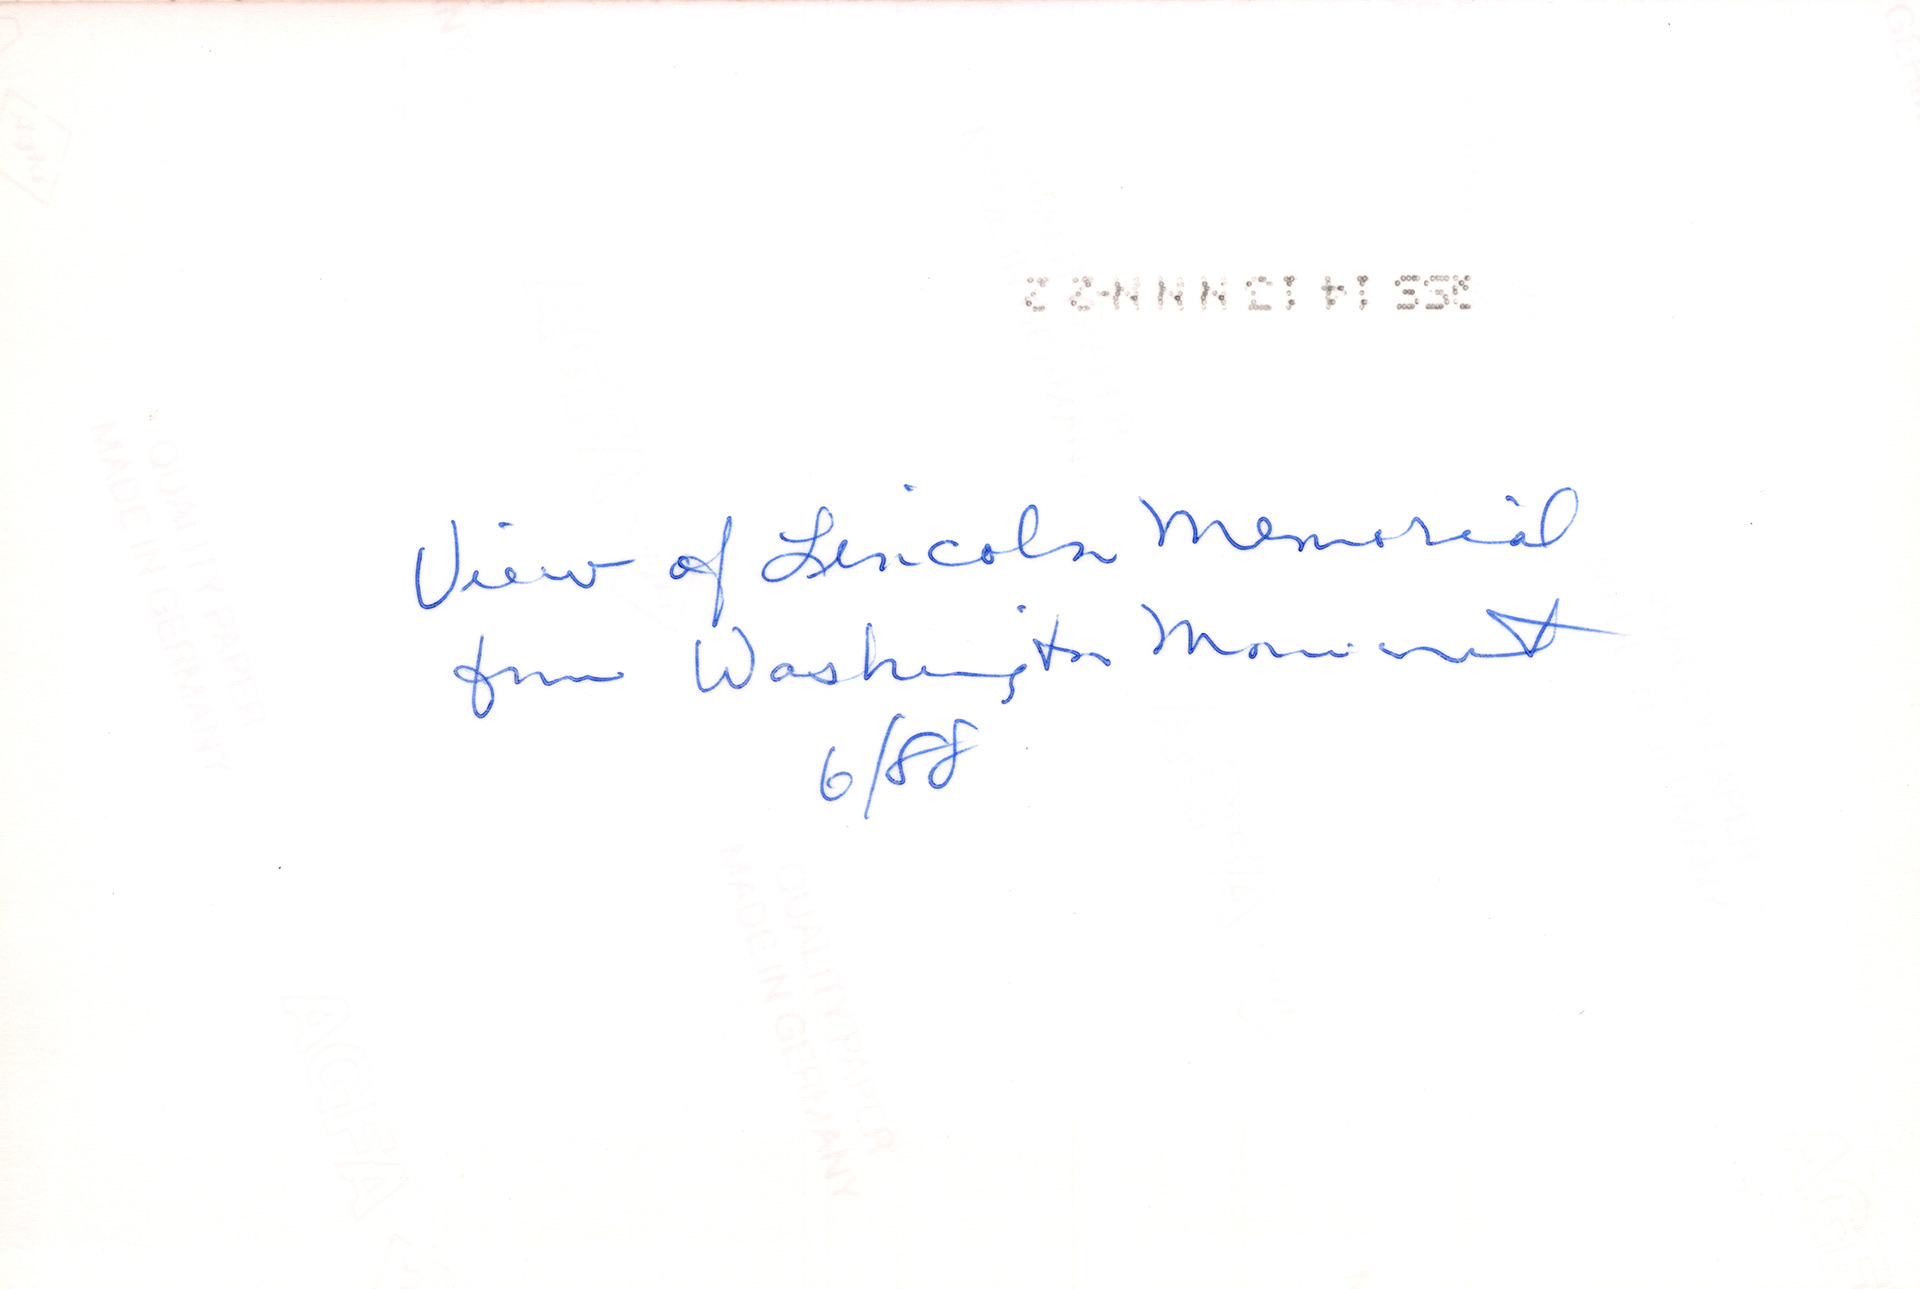 View of Lincoln Memorial
from Washington Monument
6/88
QUALITY PAPER
MADE IN GERMANY
QUALITY PAPER
MADE IN GERMANY
AGFA